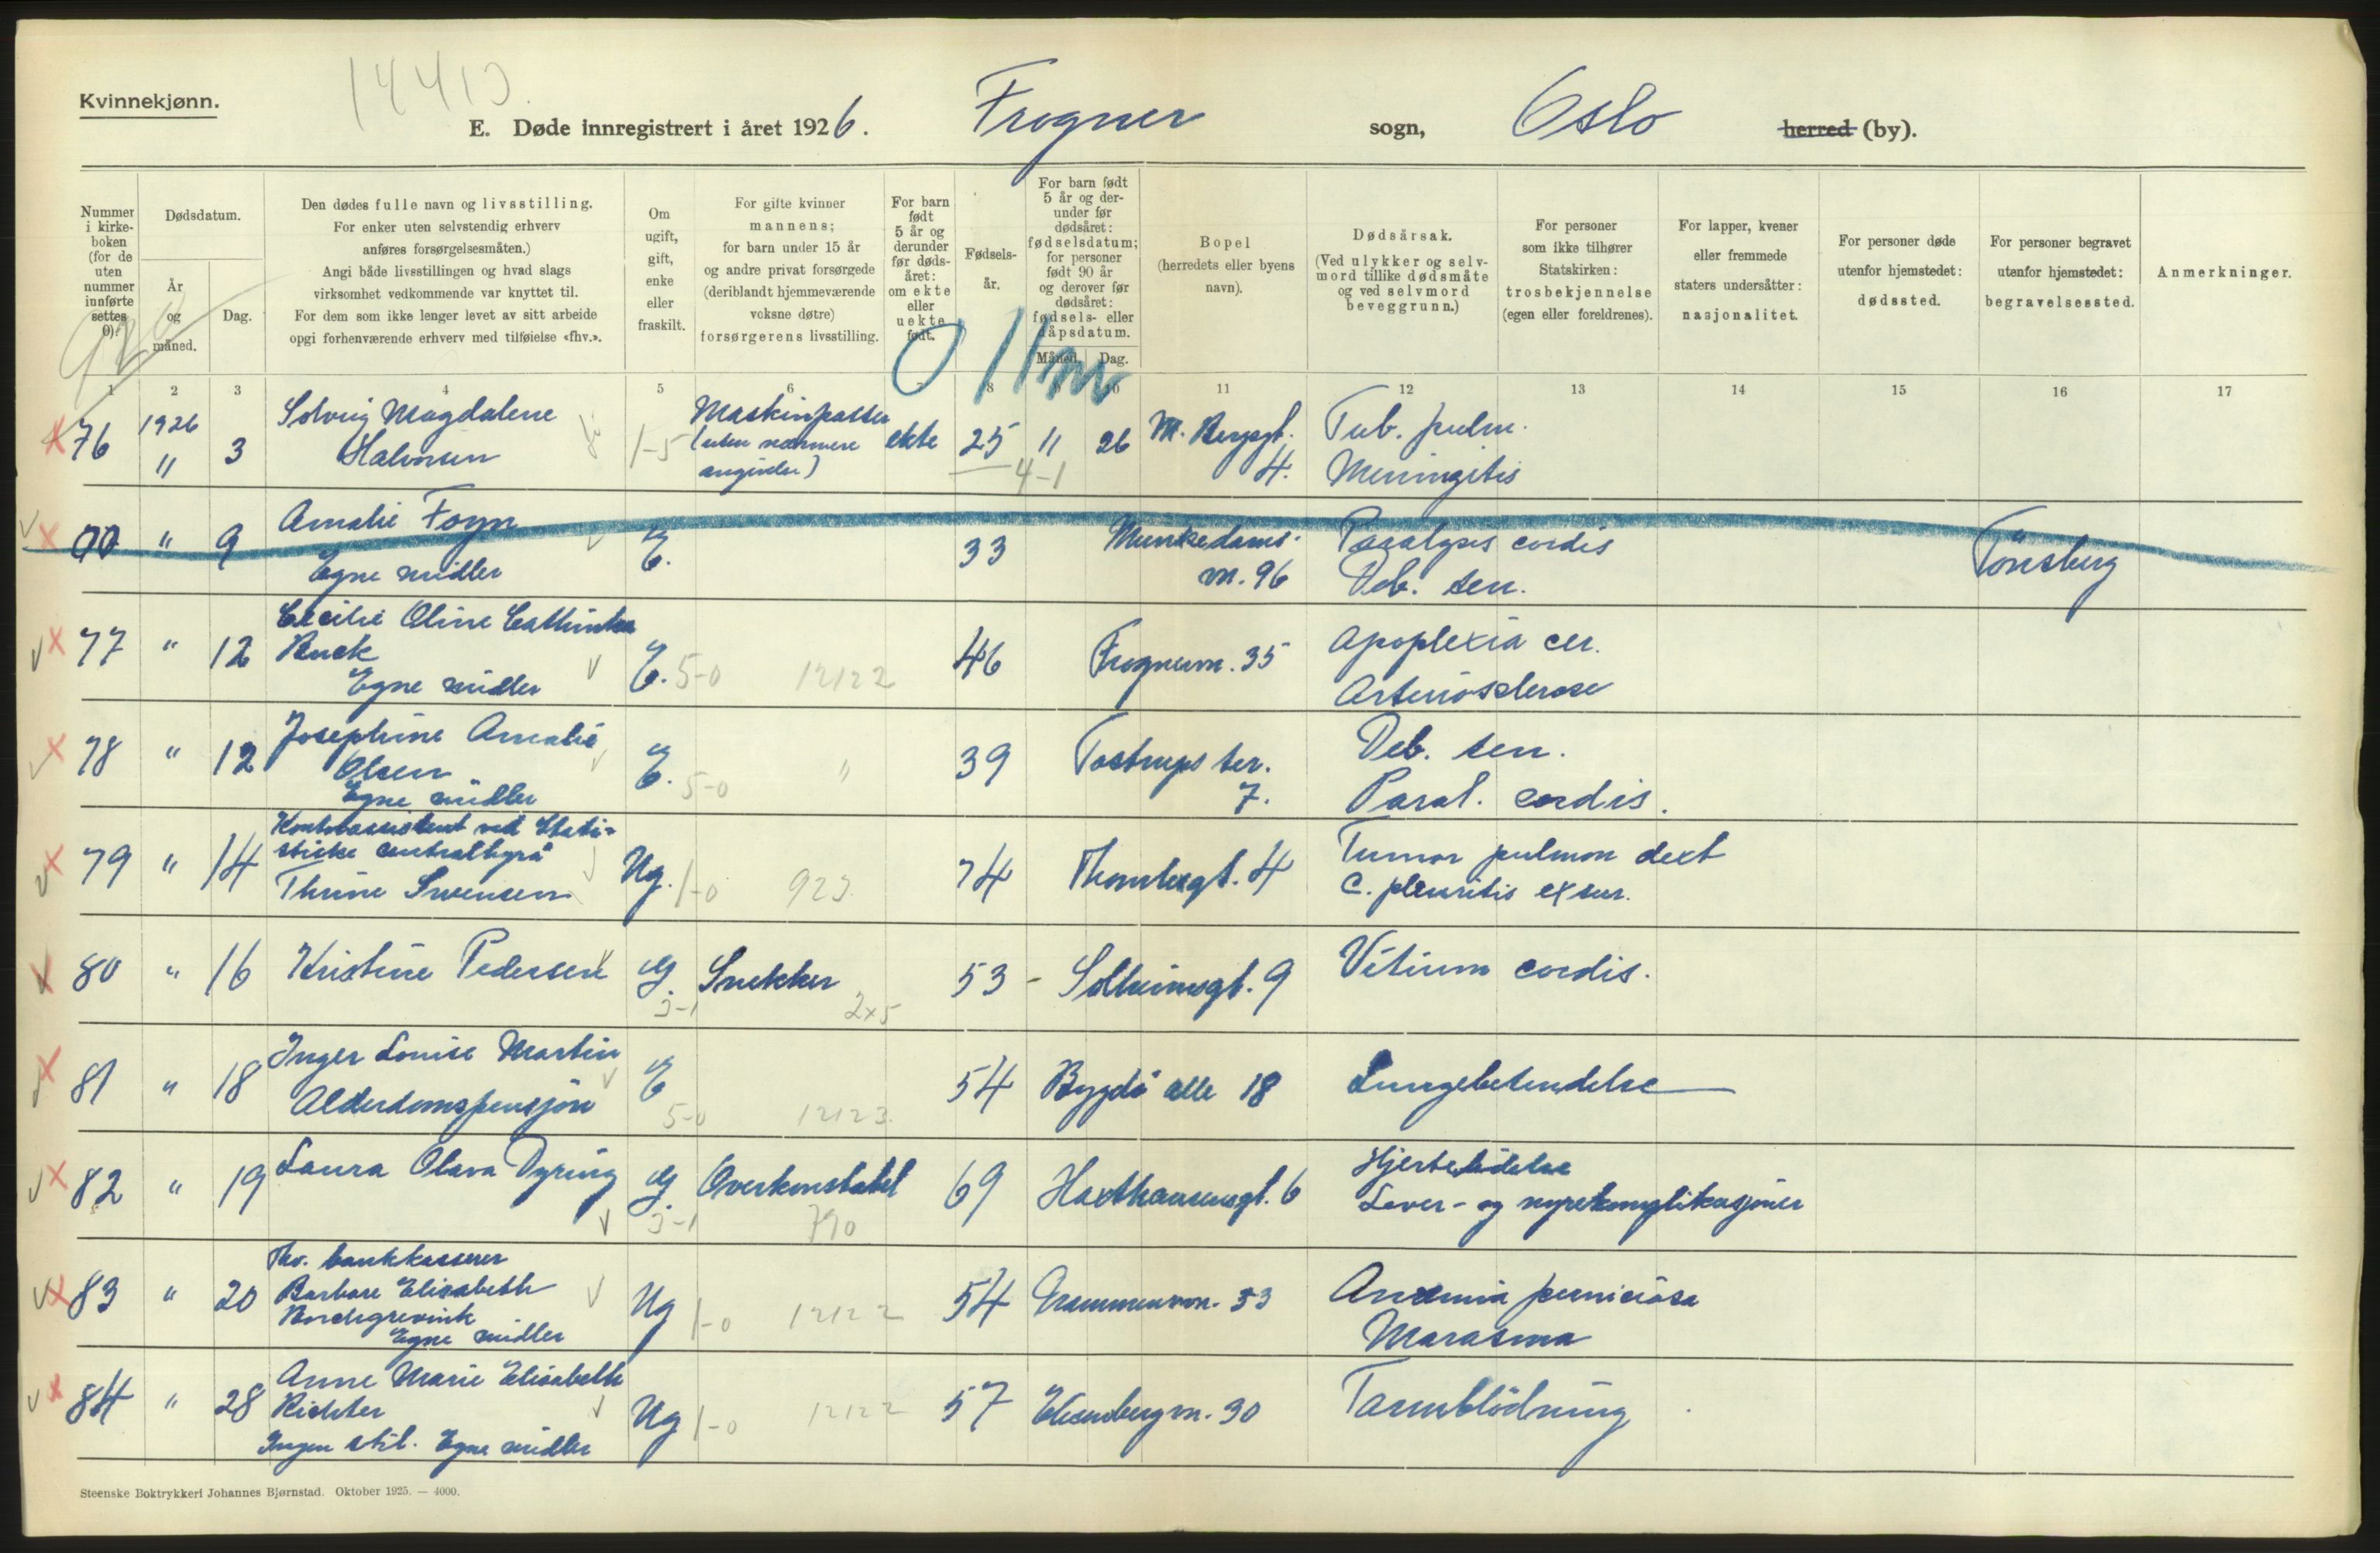 Kvinnekjønn.
14413.
E. Døde innregistrert i året 1926. Frogner sogn, Oslo herred (by).
Nummer i kirkeboken (for de uten nummer innførte settes 0).
Dødsdatum.
År og måned.
Dag.
Den dødes fulle navn og livsstilling.
For enker uten selvstendig erhverv
anføres forsørgelsesmåten.)
Angi både livsstillingen og hvad slags
virksomhet vedkommende var knyttet til.
For dem som ikke lenger levet av sitt arbeide
opgi forhenværende erhverv med tilføielse «fhv.».
Om ugift, gift, enke eller fraskilt.
For gifte kvinner
mannens;
for barn under 15 år
og andre privat forsørgede
(deriblandt hjemmeværende
voksne døtre)
forsørgerens livsstilling.
For barn født 5 år og derunder før dødsåret: om ekte eller uekte født.
Fødselsår.
For barn født 5 år og derunder før dødsåret: fødselsdatum; for personer født 90 år og derover før dødsåret: fødsels- eller dåpsdatum.
Måned. Dag.
Bopel
(herredets eller byens
navn).
Dødsårsak.
(Ved ulykker og selvmord tillike dødsmåte
og ved selvmord
beveggrunn.)
For personer
som ikke tilhører
Statskirken:
trosbekjennelse
(egen eller foreldrenes).
For lapper, kvener
eller fremmede
staters undersåtter:
nasjonalitet.
For personer døde
utenfor hjemstedet:
dødssted.
For personer begravet
utenfor hjemstedet:
begravelsessted.
Anmerkninger.
1 2 3 4 5 6 8 10 11 12 13 14 15 16 17
76 1926 " 3 Solveig Magdalene Halvorsen 1-5 Maskinpasser (uten nærmere angivelse) ekte 25 " 26 4-1 M. Bergsgt. 4. Tub. pulm. Meningitis
00 " 9 Amalie Foyn Egne midler E. 33 Munkedamsv. 96 Paralysis cordis Deb. sen. Tönsberg
77 " 12 Cecilie Oline Cathinka Buck Egne midler E. 5-0 12122 46 Frognerv. 35 Apoplexia cer. Arteriosclerose
78 " 12 Josephine Amalie Olsen Egne midler E. 5-0 " 39 Tostrups ter. 7. Deb. sen. Paral. cordis.
79 " 14 Kontorassistent ved Statistiske centralbyrå Thrine Svensen Ug. 1-0 923. 74 Thomlesgt. 4 Tumor pulmon dext c. pleuritis exsur.
80 " 16 Kristine Pedersen G. 3-1 Snekker 2x5 53 - Solheimsgt. 9 Vitium cordis.
81 " 18 Inger Louise Martin Alderdomspensjon E 5-0 12123. 54 Bygdö alle 18 Lungebetendelse
82 " 19 Laura Olava Dyring G. 3-1 Overkonstabel 790 69 Haxthausensgt. 6 Hjertelidelse Lever- og nyrekomplikasjoner
83 " 20 Fhv. bankkasserer Barbare Elisabeth Nordgrevink Egne midler Ug 1-0 12122 54 Drammensvn. 53 Anæmia perniciosa Marasma
84 " 28 Anne Marie Elisabeth Richter Ingen stil. Egne midler Ug 1-0 12122 57 Elisenbergvn. 30 Tarmblödning
Steenske Boktrykkeri Johannes Bjørnstad. Oktober 1925. — 4000.